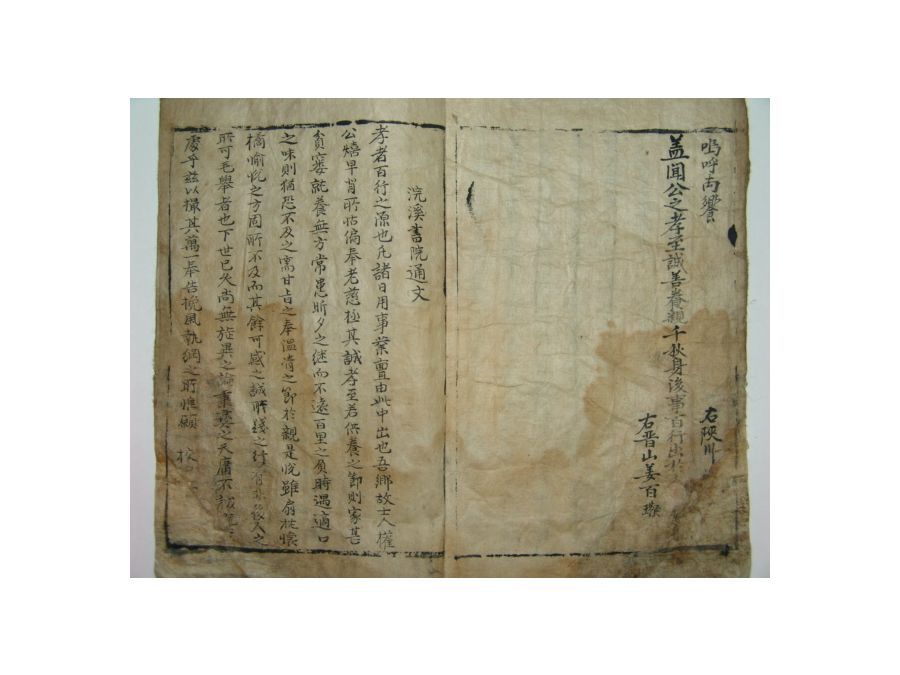 嗚呼尚饗
右陜川
盖聞公之孝至誠善養親千秋身後事百行出
右晋山姜百
浣溪書院通文
孝者百行之源也凡諸日用事業亶由此中出也吾鄕故士人權
公熺早背所怙偏奉老慈極其誠孝至若供養之節則家甚
貧窶就養無方常患昕夕之继而不遠百里之負時遇適口
之味則猶恐不及之需甘旨之奉溫凊之節於親是悅雖扇枕懷
橘愉悅之方固所不及而其餘可感之誠所踐之行
所可毛擧者也下世已久尚無旌異之論秉彛之天庸不
處乎玆以撮其萬一奉告挽風執綱之所惟願